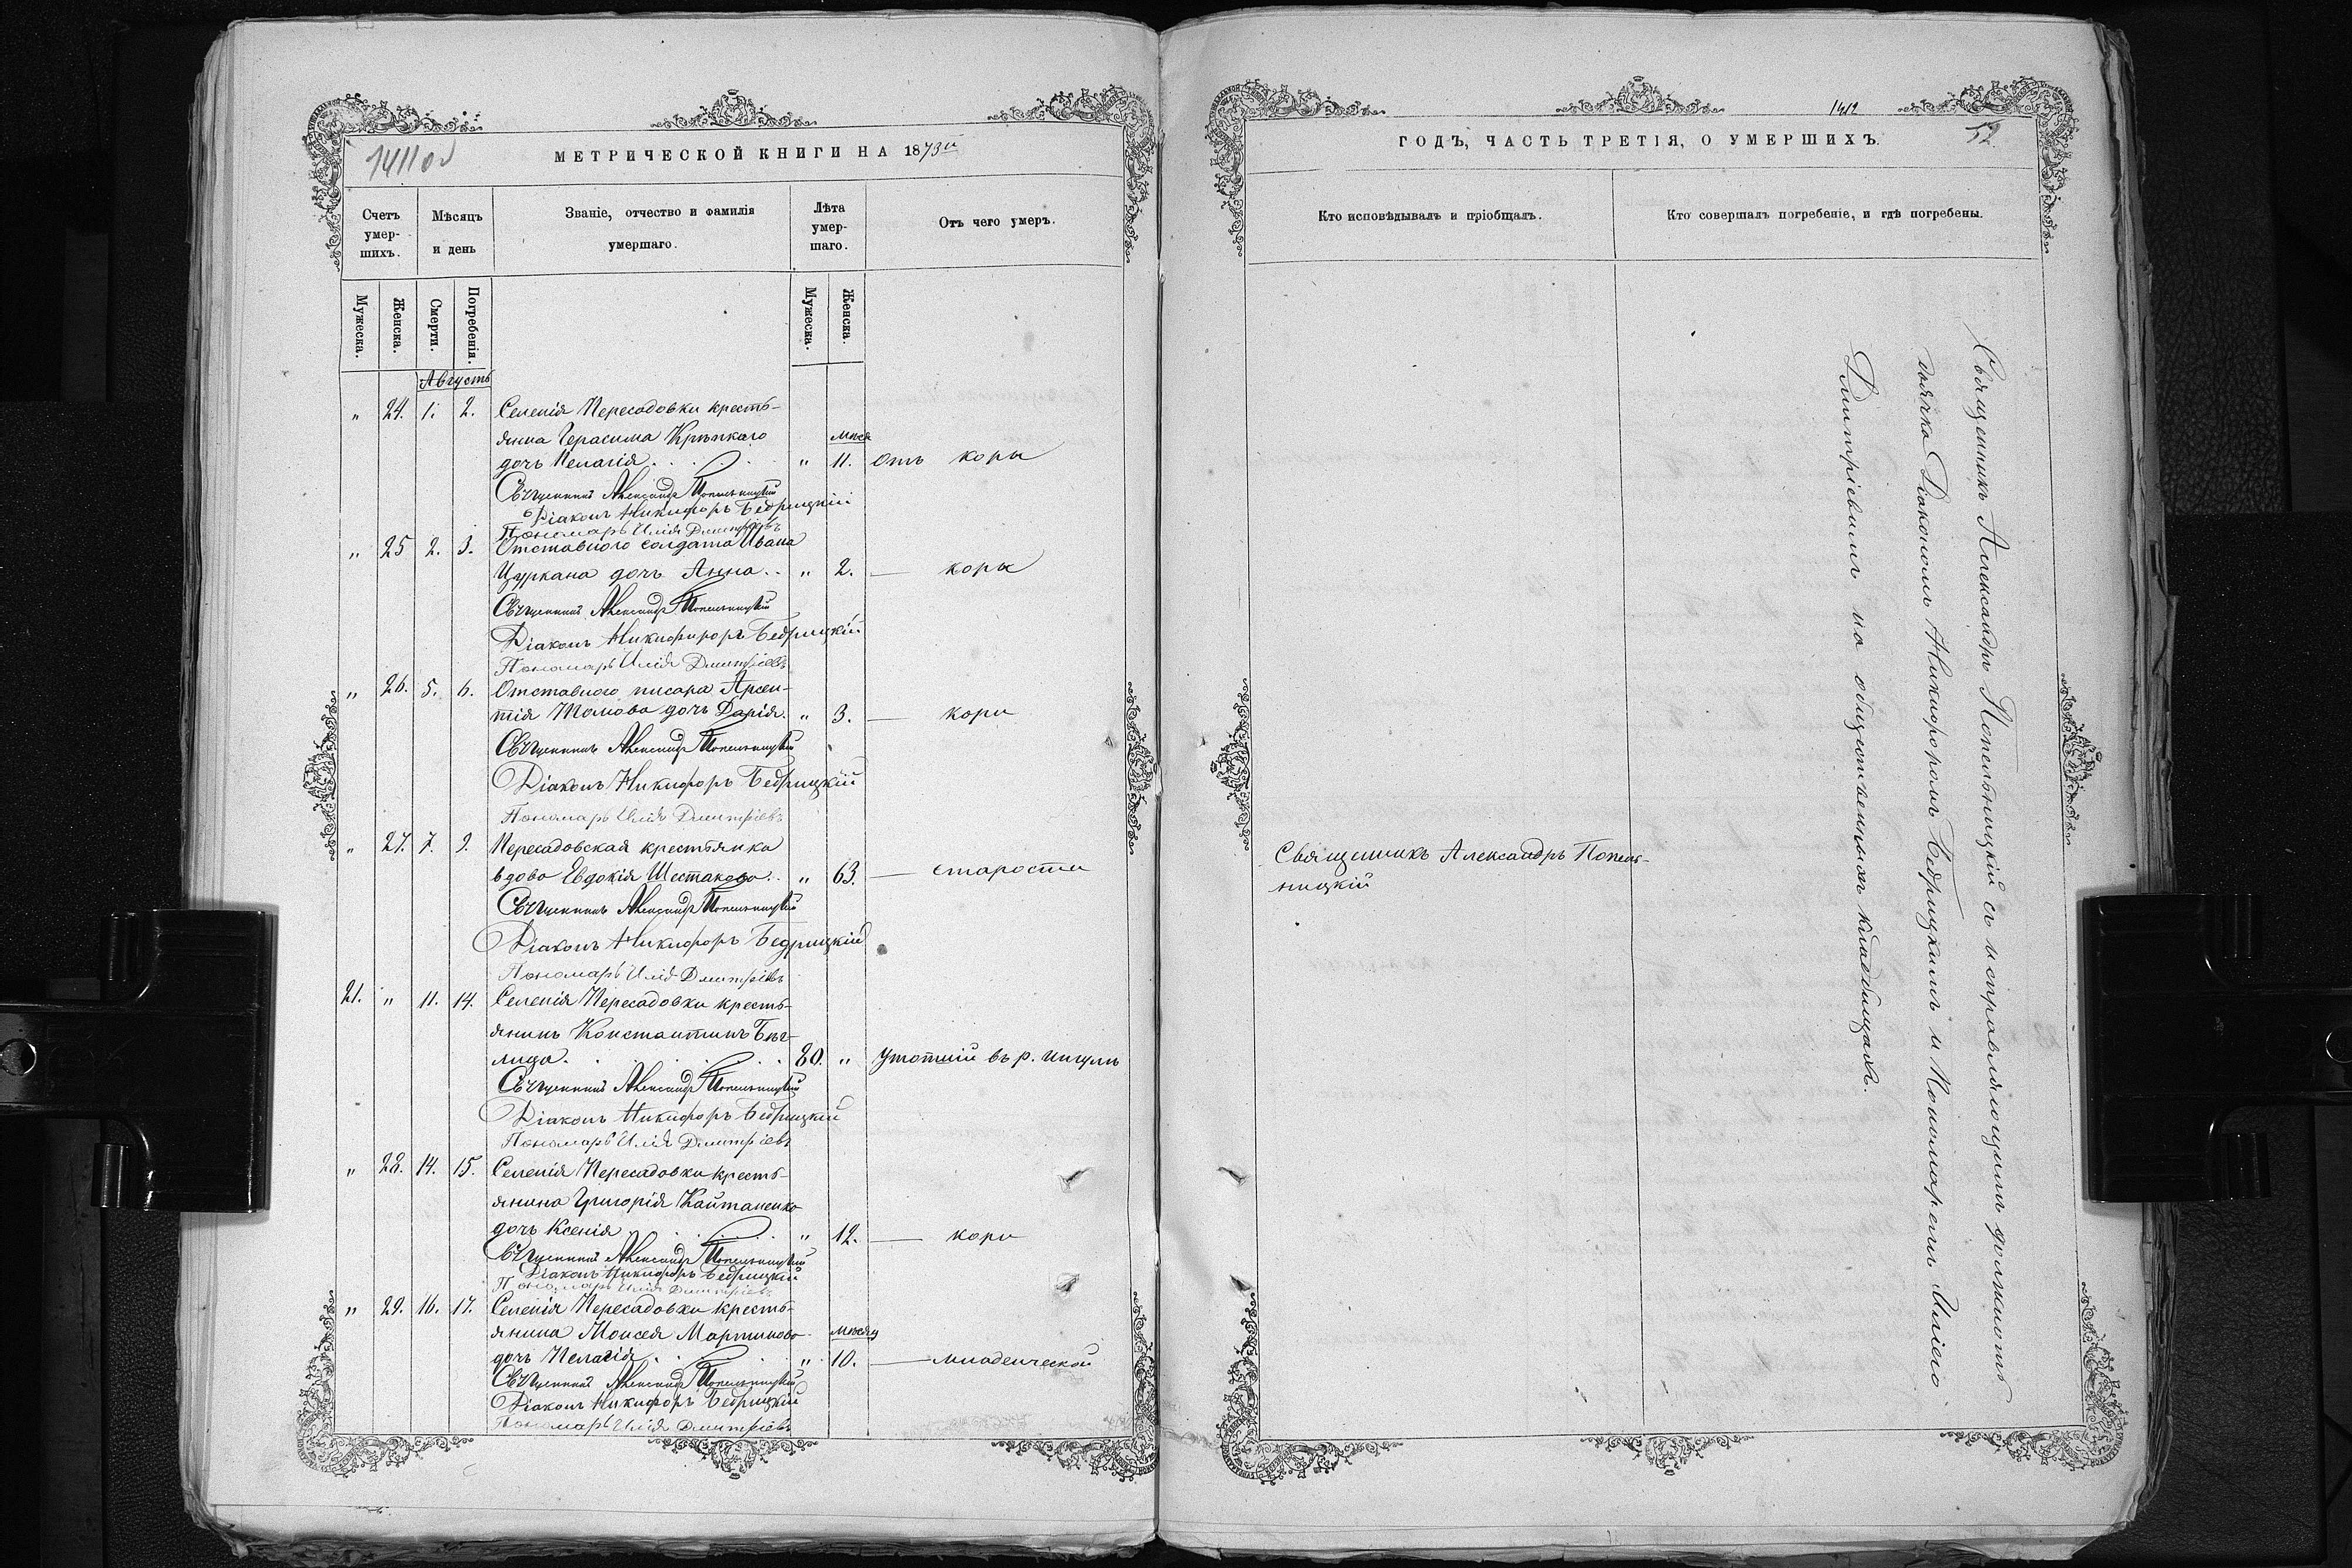 1411 об
МЕТРИЧЕСКОЙ КНИГИ НА 1873й
Счетъ умер- шихъ.
Мѣсяцъ и день
Званіе, отчество и фамилія умершаго.
Лѣта умер- шаго.
Отъ чего умеръ.
Мужеска. Женска. Смерти. Погребенія. Мужеска. Женска.
Августъ
" 24. 1. 2. Селенія Пересадовки кресть-
янина Герасима Крыжкаго мѣся
дочь Пелагія " 11. Отъ кори
Священникъ Александръ Попельницкій
Діаконъ Никифоръ Бедрицкій
Пономарь Илія Дмитріевъ
" 25 2. 3. Отставного солдата Ивана
Цуркана дочь Анна " 2. — кори
Священникъ Александръ Попельницкій
Діаконъ Никифоръ Бедрицкій
Пономарь Илія Дмитріевъ
" 26. 5. 6. Отставного писаря Арсен-
тія дочь Дарія. " 3. — кори
Священникъ Александръ Попельницкій
Діаконъ Никифоръ Бедрицкій
Пономарь Илія Дмитріевъ
" 27. 7. 9. Пересадовская крестьянка
вдова Евдокія Шестакова " 63. — старости
Священникъ Александръ Попельницкій
Діаконъ Никифоръ Бедрицкій
Пономарь Илія Дмитріевъ
21. " 11. 14. Селенія Пересадовки кресть-
янинъ Константинъ Бѣг-
лица 20. " утопшій въ р. Ингулѣ
Священникъ Александръ Попельницкій
Діаконъ Никифоръ Бедрицкій
Пономарь Илія Дмитріевъ
" 28. 14. 15. Селенія Пересадовки кресть-
янина Григорія Кайтаненко
дочь Ксенія " 12. — кори
Священникъ Александръ Попельницкій
Діаконъ Никифоръ Бедрицкій
Пономарь Илія Дмитріевъ
" 29. 16. 17. Селенія Пересадовки кресть-
янина Моисея Мартинова мѣсяц
дочь Пелагія " 10. — младенческой
Священникъ Александръ Попельницкій
Діаконъ Никифоръ Бедрицкій
Пономарь Илія Дмитріевъ
1412
52
ГОДЪ, ЧАСТЬ ТРЕТІЯ, О УМЕРШИХЪ.
Кто исповѣдывалъ и пріобщалъ.
Кто совершалъ погребеніе, и гдѣ погребены.
Священникъ Александръ Попель-
ницкій
Священникъ Александръ Попельницкій съ исправляющимъ должность
дьячка Діакономъ Никифоромъ Бедрицкимъ и Пономаремъ Иліею
Дмитріевимъ на общественныхъ кладбищахъ.